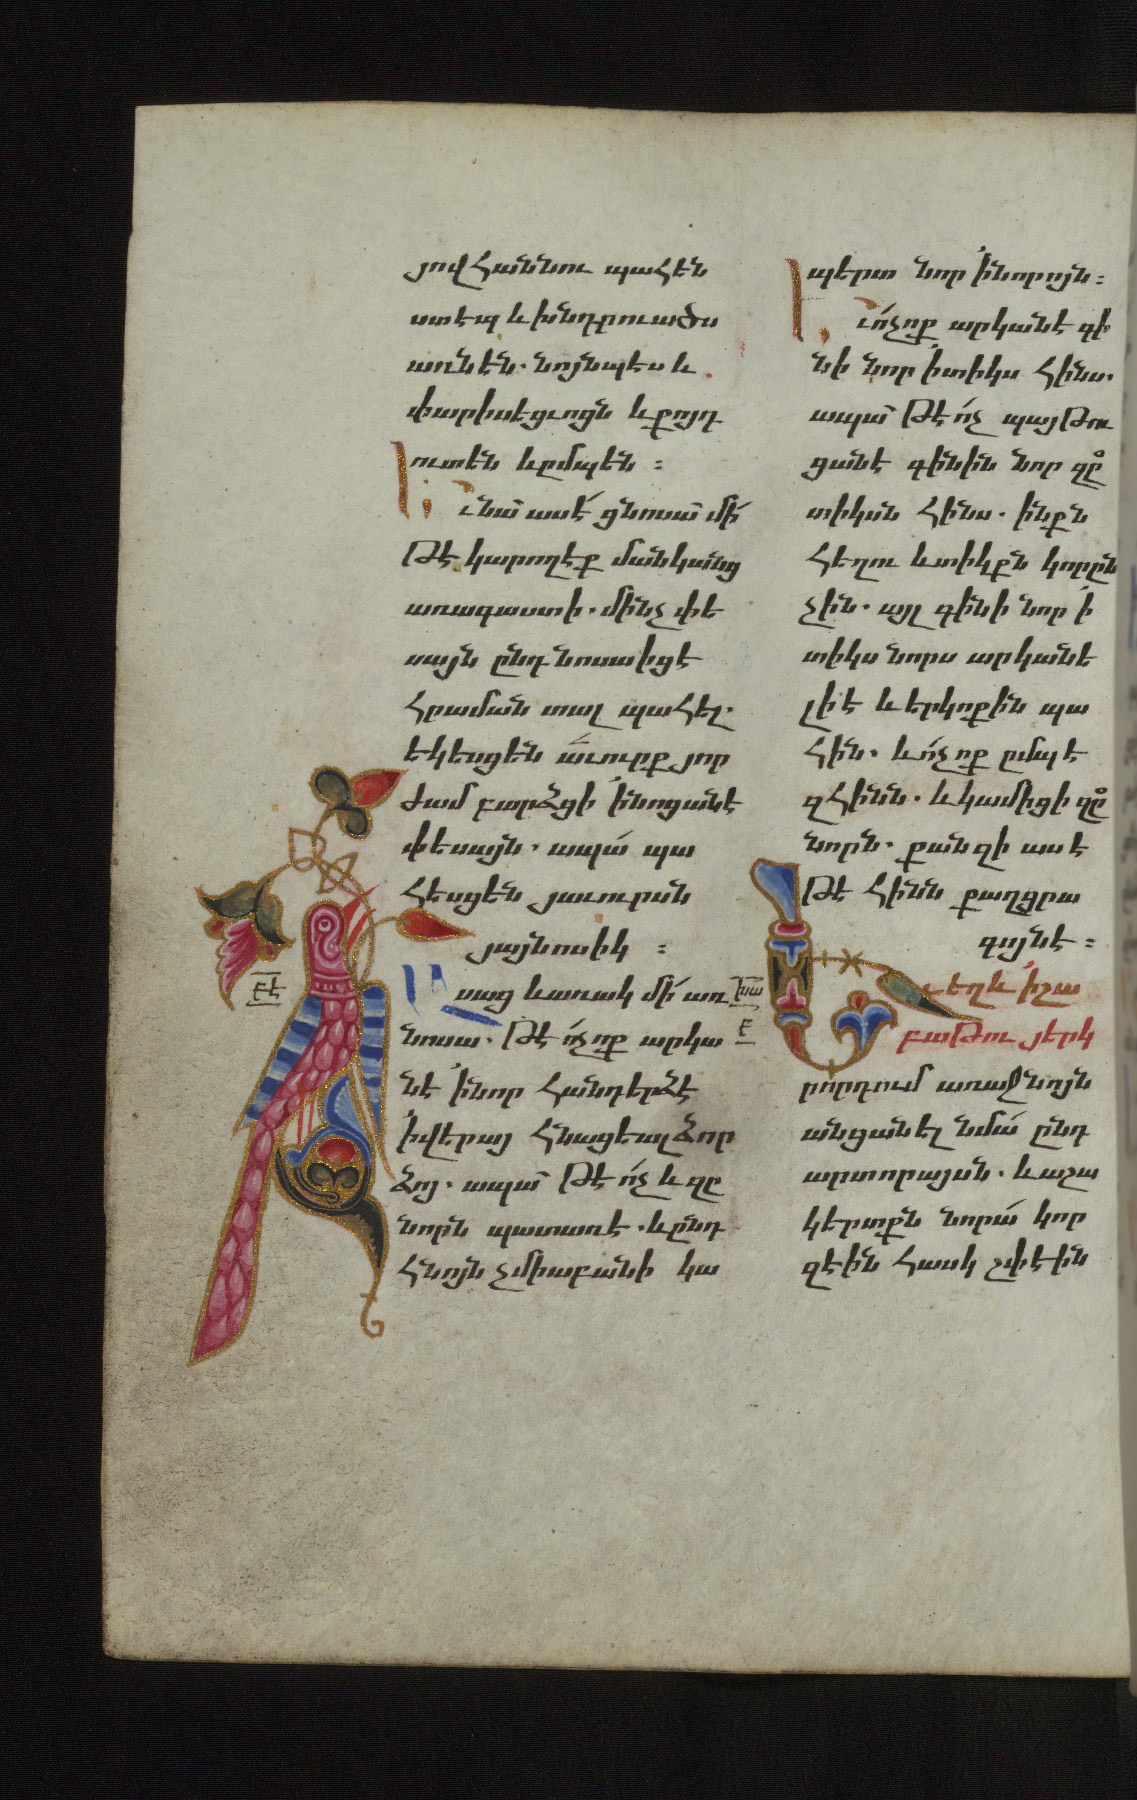 յովհաննու պահեն
ստէպ և խնդրուածս
առնեն. նոյնպէս և
փարիսեցւոցն և քոյդ
ուտեն և ըմպեն :
Եւ նա՛ ասէ՛ ցնոսա՛ մի՛
թէ կարողէք մանկանց
առագաստի. մինչ փե
սայն ընդ նոսա իցէ
հրաման տալ պահել.
եկեսցեն աւուրք յոր
ժամ բարձցի ՛ի նոցանէ
փեսայն. ապա՛ պա
հեսցեն յաւուրսն
յայնոսիկ :
բէ
Ասաց և առակ մի՛ առ
նոսա. թէ ո՛չ ոք արկա
նէ ՛ի նոր հանդերձէ
՛ի վերայ հնացեալ ձոր
ձոյ. ապա՛ թէ ո՛չ և զը
նորն պատառէ. և ընդ
հնոյն չմիաբանի կա
պերտ նոր ՛ի նորոյն :
Եւ ո՛չ ոք արկանէ գի
նի նոր ՛ի տիկս հինս.
ապա՛ թէ ո՛չ պայթու
ցանէ գինին նոր զը
տիկսն հինս. ինքն
հեղու և տիկքն կորըն
չին. այլ գինի նոր ՛ի
տիկս նորս արկանե
լի է և երկոքին պա
հին. և ո՛չ ոք ըմպէ
զհինն. և կամիցի զը
նորն. քանզի ասէ
թէ հինն քաղցրա
գոյնէ :
խա
բ
Եւ եղև ՛ի շա
բաթու յերկ
րորդում առաջնոյն
անցանել նմա՛ ընդ
արտորայսն. և աշա
կերտքն նորա՛ կոր
զէին հասկ շփէին